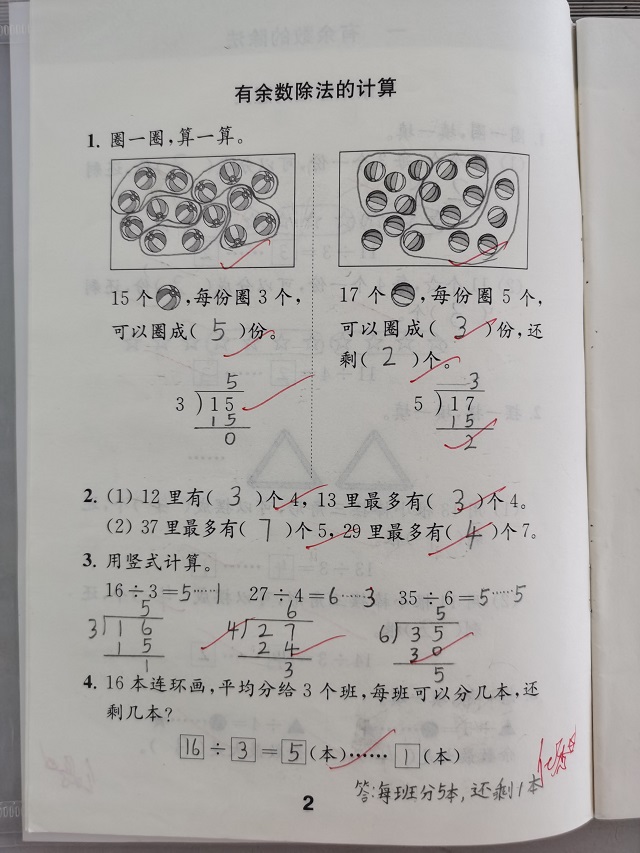 有余数除法的计算
1. 圈一圈，算一算。
15 个，每份圈 3 个，
可以圈成( 5 )份。
5
3 ) 1 5
1 5
0
17 个，每份圈 5 个，
可以圈成( 3 )份，还
剩( 2 )个。
3
5 ) 1 7
1 5
2
2. (1) 12 里有( 3 )个 4，13 里最多有( 3 )个 4。
(2) 37 里最多有( 7 )个 5，29 里最多有( 4 )个 7。
3. 用竖式计算。
16÷3=5……1 27÷4=6……3 35÷6=5……5
5
3 ) 1 6
1 5
1
6
4 ) 2 7
2 4
3
5
6 ) 3 5
3 0
5
4. 16 本连环画，平均分给 3 个班，每班可以分几本，还
剩几本？
16 ÷ 3 = 5 (本)…… 1 (本)
答：每班分5本，还剩1本
2